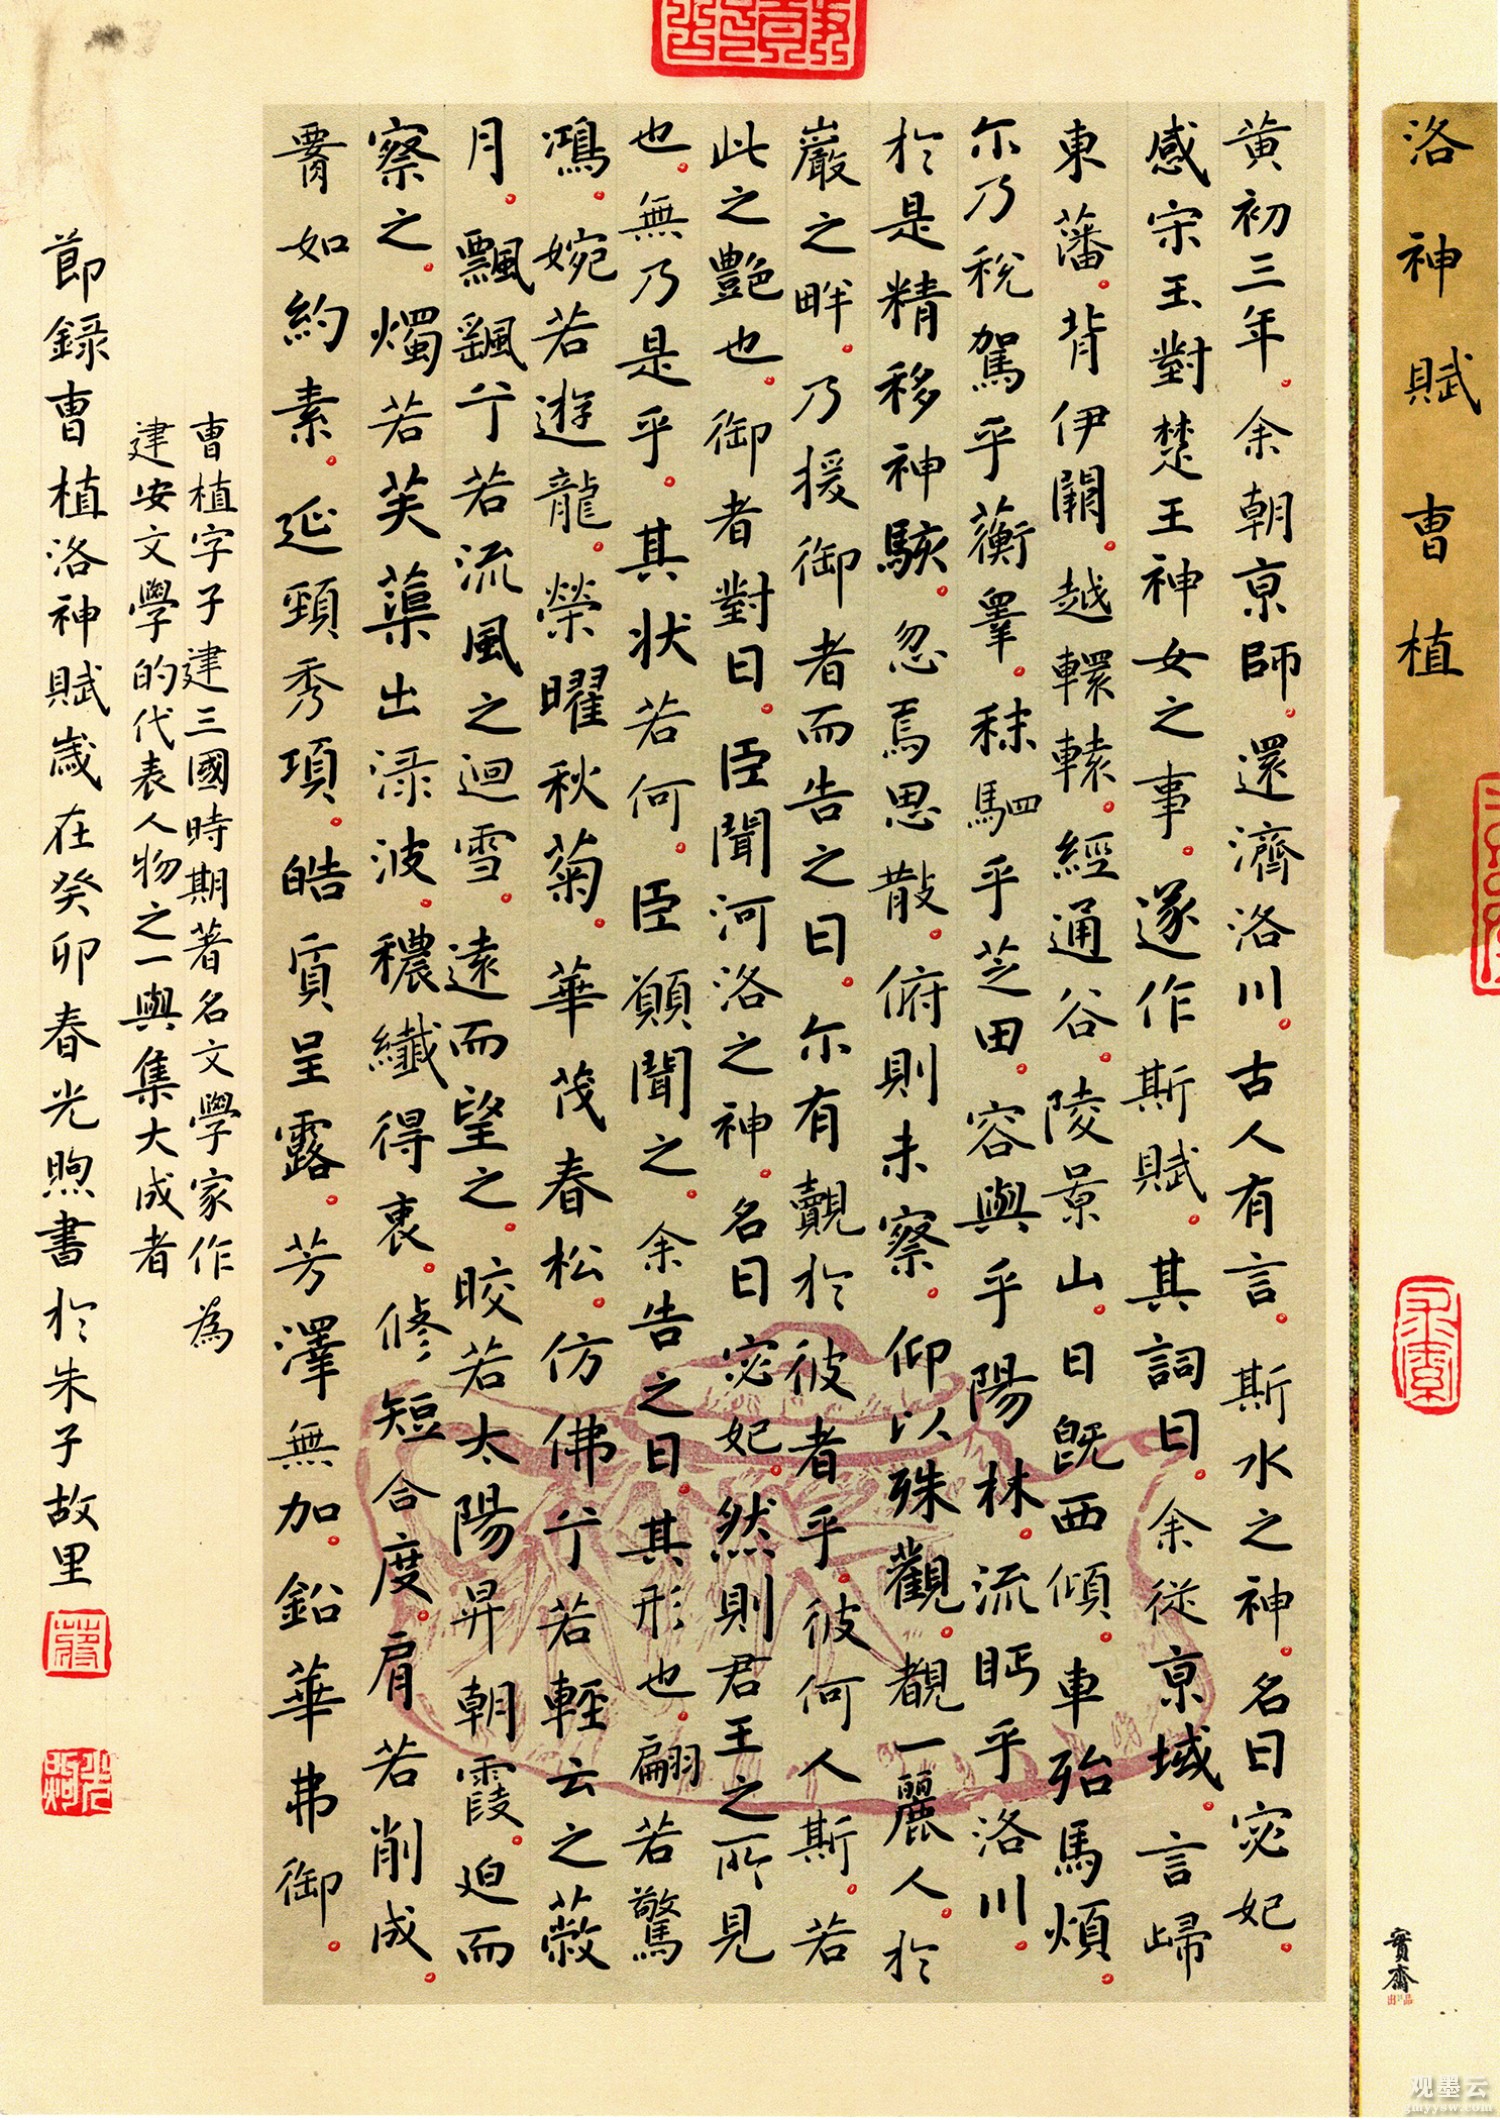 洛神賦 曹植
黄初三年。余朝京師。還濟洛川。古人有言。斯水之神。名曰宓妃。
感宋玉對楚王神女之事。遂作斯賦。其詞曰。余従京域。言歸
東藩。背伊闕。越轘轅。經通谷。陵景山。日旣西傾。車殆馬煩。
尔乃稅駕乎蘅皋。秣駟乎芝田。容與乎陽林。流眄乎洛川。
於是精移神駭。忽焉思散。俯則未察。仰以殊觀。覩一麗人。於
巖之畔。乃援御者而告之曰。尔有覿於彼者乎。彼何人斯。若
此之艷也。御者對曰。臣聞河洛之神。名曰宓妃。然則君王之所見
也。無乃是乎。其状若何。臣願聞之。余告之曰。其形也。翩若驚
鴻。婉若遊龍。榮曜秋菊。華茂春松。仿佛兮若輕云之蔽
月。飄颻兮若流風之迴雪。遠而望之。皎若太陽昇朝霞。迫而
察之。燭若芙蕖出渌波。穠纖得衷。修短合度。肩若削成。
腰如約素。延頸秀項。皓質呈露。芳澤無加。鉛華弗御。
曹植字子建三國時期著名文學家作為
建安文學的代表人物之一與集大成者
節録曹植洛神賦歲在癸卯春光煦書於朱子故里
寶齋
出品
观墨云
gmyysw.com